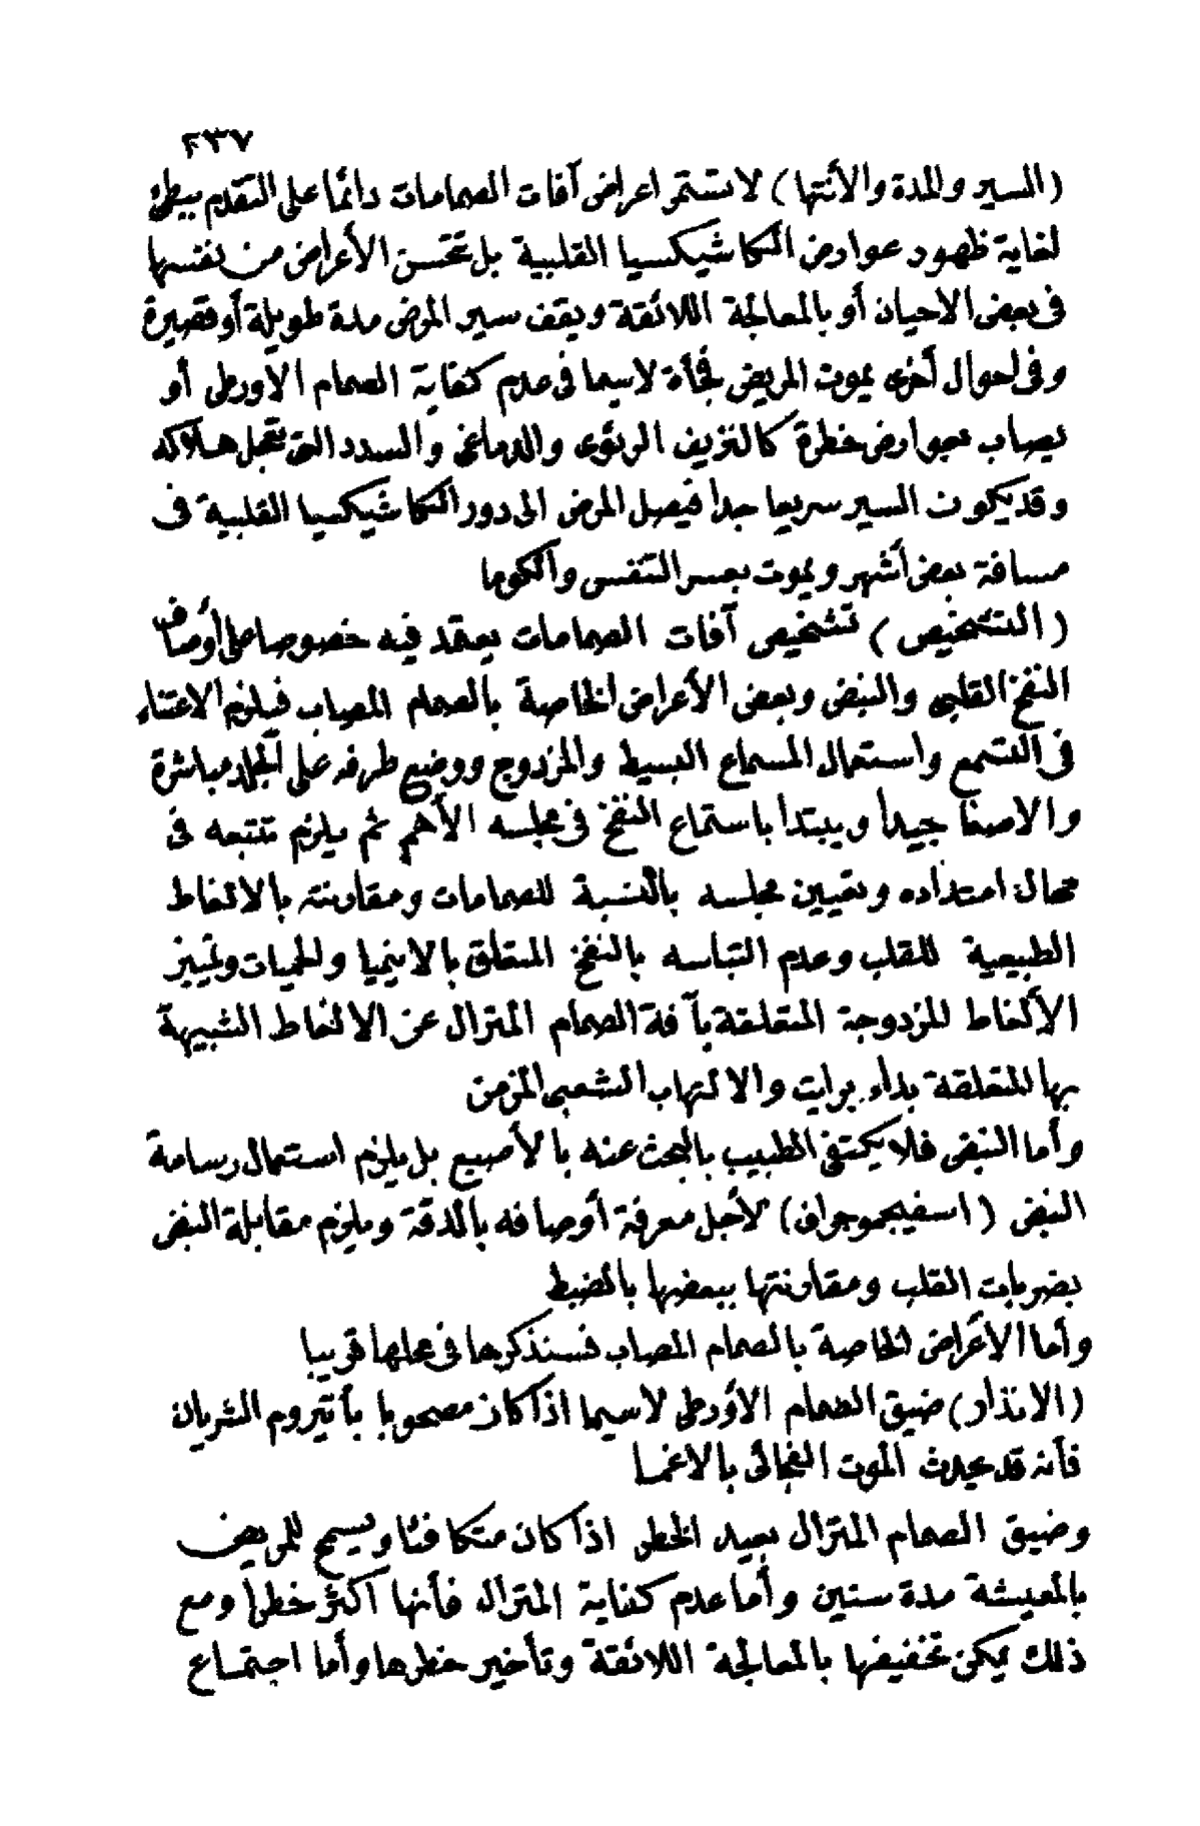 ٢٣٧
(السير والمدة والأنتها) لا تستمر اعراض آفات الصمامات دائما على التقدم ببطئ
لغاية ظهور عوارض الكاشيكسيا القلبية بل تتحسن الأعراض من نفسها
فى بعض الاحيان أو بالمعالجة اللائقة ويقف سير المرض مدة طويلة أو قصيرة
وفى احوال أخرى يموت المريض فجأة لاسيما فى عدم كفاية الصمام الأورطى أو
يصاب بعوارض خطرة كالنزيف الرئوى والدماغى والسدد التى تعجل هلاكه
وقد يكون السير سريعا جدا فيصل المرض الى دور الكاشيكسيا القلبية فى
مسافة بعض أشهر ويموت بعسر التنفس والكوما
(التشخيص) تشخيص آفات الصمامات يعتمد فيه خصوصا على أوصاف
النفخ القلبى والنبض وبعض الأعراض الخاصة بالصمام المصاب فيلزم الاعتناء
فى التسمع واستعمال المسماع البسيط والمزدوج ووضع طرفه على الجلد مباشرة
والاصغا جيدا ويبتدا باستماع النفخ فى مجلسه الأهم ثم يلزم تتبعه فى
محال امتداده وتعيين مجلسه بالنسبة للصمامات ومقارنته بالالغاط
الطبيعية للقلب وعدم التباسه بالنفخ المتعلق بالانيميا والحميات وتمييز
الألغاط المزدوجة المتعلقة بآفة الصمام المترال عن الالغاط الشبيهة
بها المتعلقة بداء برايت والالتهاب الشعبى المزمن
وأما النبض فلا يكتفى الطبيب بالبحث عنه بالأصبع بل يلزم استعمال رسامة
النبض (اسفيجموجراف) لأجل معرفة أوصافه بالدقة ويلزم مقابلة النبض
بضربات القلب ومقارنتها ببعضها بالضبط
وأما الأعراض الخاصة بالصمام المصاب فسنذكرها فى محلها قريبا
(الانذار) ضيق الصمام الأورطى لاسيما اذا كان مصحوبا بأتيروم الشريان
فأنه قد يحدث الموت الفجائى بالاغما
وضيق الصمام المترال بعيد الخطر اذا كان متكافئا ويسمح للمريض
بالمعيشة مدة سنين وأما عدم كفاية المترال فأنها أكثر خطرا ومع
ذلك يمكن تخفيفها بالمعالجة اللائقة وتأخير خطرها وأما اجتماع